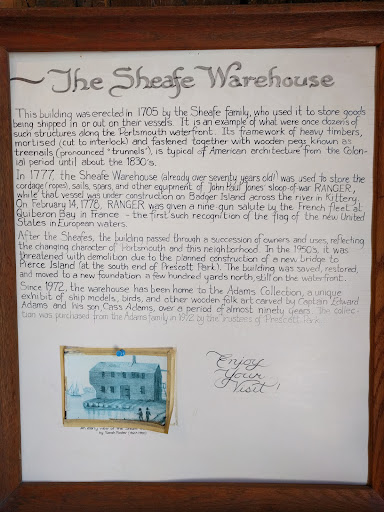 The Sheafe Warehouse
This building was erected in 1705 by the Sheafe family, who used it to store goods
being shipped in or out on their vessels. It is an example of what were once dozens of
such structures along the Portsmouth waterfront. Its framework of heavy timbers,
mortised (cut to interlock) and fastened together with wooden pegs known as
treenails (pronounced "trunnels"), is typical of American architecture from the Colon-
ial period until about the 1830's.
In 1777, the Sheafe Warehouse (already over seventy years old!) was used to store the
cordage (ropes), sails, spars, and other equipment of John Paul Jones' sloop-of-war RANGER,
while that vessel was under construction on Badger Island across the river in Kittery.
On February 14, 1778, RANGER was given a nine-gun salute by the French fleet at
Quiberon Bay in France - the first such recognition of the flag of the new United
States in European waters.
After the Sheafes, the building passed through a succession of owners and uses, reflecting
the changing character of Portsmouth and this neighborhood. In the 1950's, it was
threatened with demolition due to the planned construction of a new bridge to
Pierce Island (at the south end of Prescott Park). The building was saved, restored,
and moved to a new foundation a few hundred yards north, still on the waterfront.
Since 1972, the warehouse has been home to the Adams Collection, a unique
exhibit of ship models, birds, and other wooden folk art carved by Captain Edward
Adams and his son, Cass Adams, over a period of almost ninety years. The collec-
tion was purchased from the Adams family in 1972 by the Trustees of Prescott Park.
Enjoy
Your
Visit!
An early view of the Sheafe
by Sarah